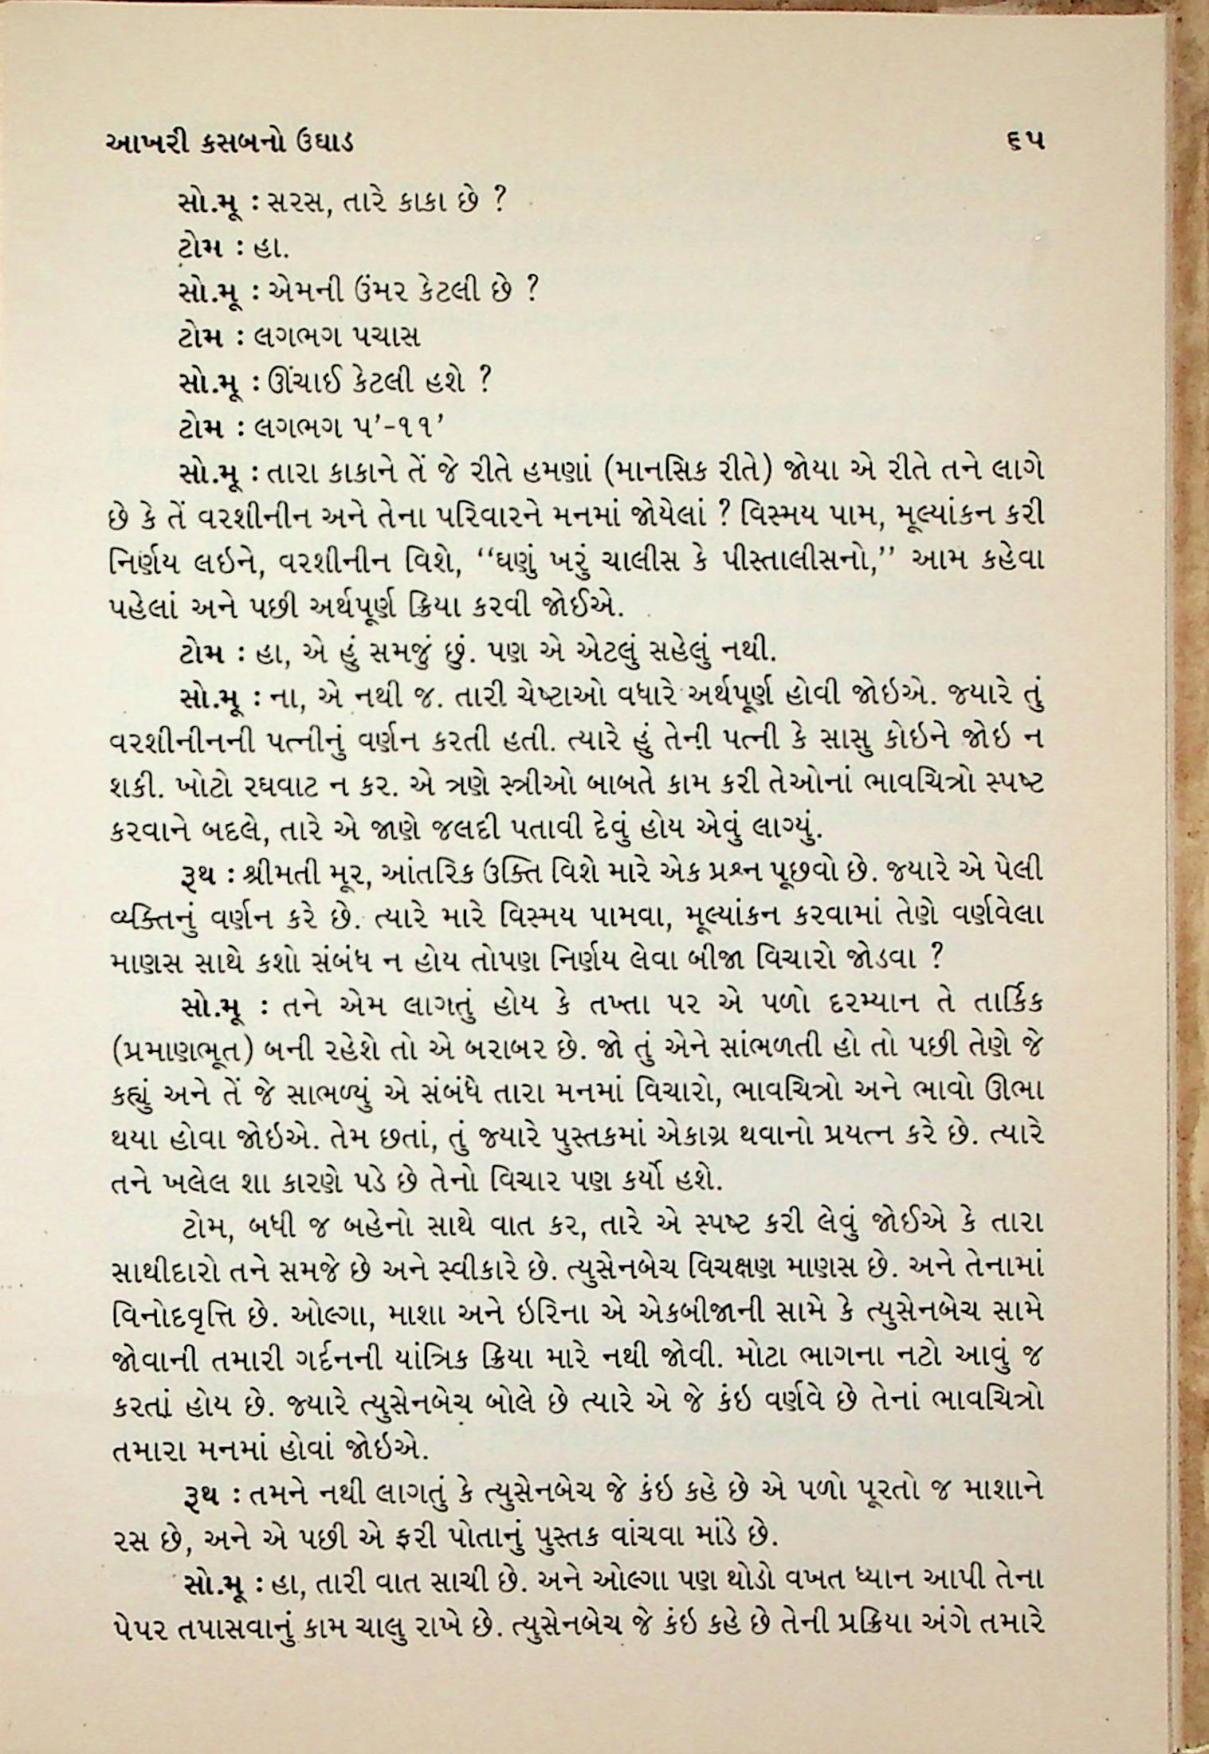 આખરી કસબનો ઉઘાડ ૬૫
સો.મૂ : સરસ, તારે કાકા છે ?
ટોમ : હા.
સો.મૂ : એમની ઉંમર કેટલી છે ?
ટોમ : લગભગ પચાસ
સો.મૂ : ઊંચાઈ કેટલી હશે ?
ટોમ : લગભગ ૫'-૧૧'
સો.મૂ : તારા કાકાને તેં જે રીતે હમણાં (માનસિક રીતે) જોયા એ રીતે તને લાગે
છે કે તેં વરશીનીન અને તેના પરિવારને મનમાં જોયેલાં ? વિસ્મય પામ, મૂલ્યાંકન કરી
નિર્ણય લઇને, વરશીનીન વિશે, ‘‘ઘણું ખરું ચાલીસ કે પીસ્તાલીસનો,’’ આમ કહેવા
પહેલાં અને પછી અર્થપૂર્ણ ક્રિયા કરવી જોઈએ.
ટોમ : હા, એ હું સમજું છું. પણ એ એટલું સહેલું નથી.
સો.મૂ : ના, એ નથી જ. તારી ચેષ્ટાઓ વધારે અર્થપૂર્ણ હોવી જોઇએ. જ્યારે તું
વરશીનીનની પત્નીનું વર્ણન કરતી હતી. ત્યારે હું તેની પત્ની કે સાસુ કોઇને જોઇ ન
શકી. ખોટો રઘવાટ ન કર. એ ત્રણે સ્ત્રીઓ બાબતે કામ કરી તેઓનાં ભાવચિત્રો સ્પષ્ટ
કરવાને બદલે, તારે એ જાણે જલદી પતાવી દેવું હોય એવું લાગ્યું.
રૂથ : શ્રીમતી મૂર, આંતરિક ઉક્તિ વિશે મારે એક પ્રશ્ન પૂછવો છે. જ્યારે એ પેલી
વ્યક્તિનું વર્ણન કરે છે. ત્યારે મારે વિસ્મય પામવા, મૂલ્યાંકન કરવામાં તેણે વર્ણવેલા
માણસ સાથે કશો સંબંધ ન હોય તોપણ નિર્ણય લેવા બીજા વિચારો જોડવા ?
સો.મૂ : તને એમ લાગતું હોય કે તખ્તા પર એ પળો દરમ્યાન તે તાર્કિક
(પ્રમાણભૂત) બની રહેશે તો એ બરાબર છે. જો તું એને સાંભળતી હો તો પછી તેણે જે
કહ્યું અને તેં જે સાભળ્યું એ સંબંધે તારા મનમાં વિચારો, ભાવચિત્રો અને ભાવો ઊભા
થયા હોવા જોઇએ. તેમ છતાં, તું જ્યારે પુસ્તકમાં એકાગ્ર થવાનો પ્રયત્ન કરે છે. ત્યારે
તને ખલેલ શા કારણે પડે છે તેનો વિચાર પણ કર્યો હશે.
ટોમ, બધી જ બહેનો સાથે વાત કર, તારે એ સ્પષ્ટ કરી લેવું જોઈએ કે તારા
સાથીદારો તને સમજે છે અને સ્વીકારે છે. ત્યુસેનબેચ વિચક્ષણ માણસ છે. અને તેનામાં
વિનોદવૃત્તિ છે. ઓલ્ગા, માશા અને ઇરિના એ એકબીજાની સામે કે ત્યુસેનબેચ સામે
જોવાની તમારી ગર્દનની યાંત્રિક ક્રિયા મારે નથી જોવી. મોટા ભાગના નટો આવું જ
કરતાં હોય છે. જ્યારે ત્યુસેનબેચ બોલે છે ત્યારે એ જે કંઇ વર્ણવે છે તેનાં ભાવચિત્રો
તમારા મનમાં હોવાં જોઇએ.
રૂથ : તમને નથી લાગતું કે ત્યુસેનબેચ જે કંઇ કહે છે એ પળો પૂરતો જ માશાને
રસ છે, અને એ પછી એ ફરી પોતાનું પુસ્તક વાંચવા માંડે છે.
સો.મૂ : હા, તારી વાત સાચી છે. અને ઓલ્ગા પણ થોડો વખત ધ્યાન આપી તેના
પેપર તપાસવાનું કામ ચાલુ રાખે છે. ત્યુસેનબેચ જે કંઇ કહે છે તેની પ્રક્રિયા અંગે તમારે